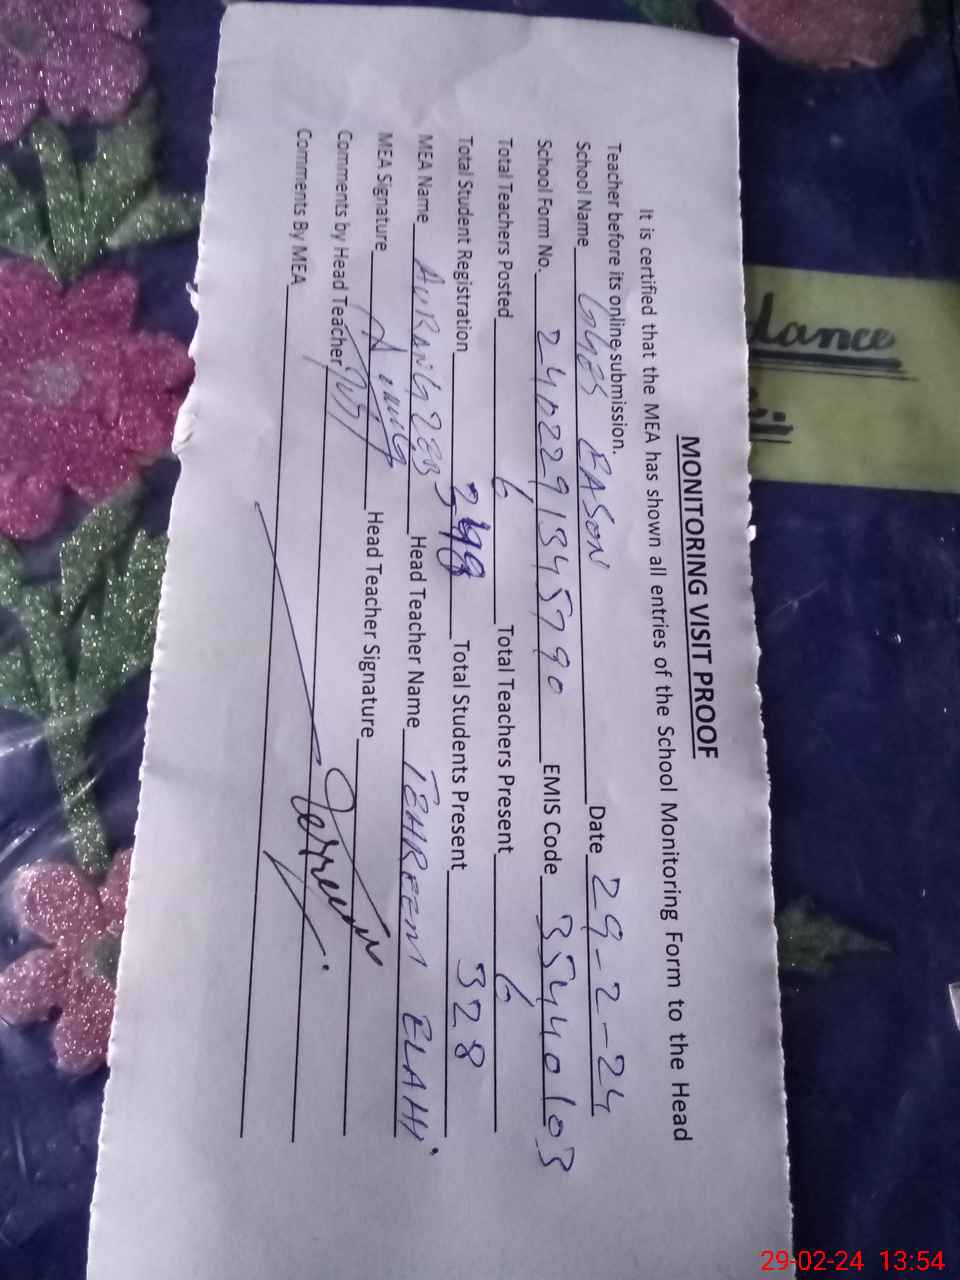 MONITORING VISIT PROOF
It is certified that the MEA has shown all entries of the School Monitoring Form to the Head
Teacher before its online submission.
School Name GGES RASON Date 29-2-24
School Form No. 2402291345790 EMIS Code 35440103
Total Teachers Posted 6 Total Teachers Present 6
Total Student Registration Total Students Present 328
MEA Name AURANGZEB Head Teacher Name TEHREEM ELAHI
MEA Signature Head Teacher Signature
Comments by Head Teacher
Comments By MEA
dance
29-02-24 13:54